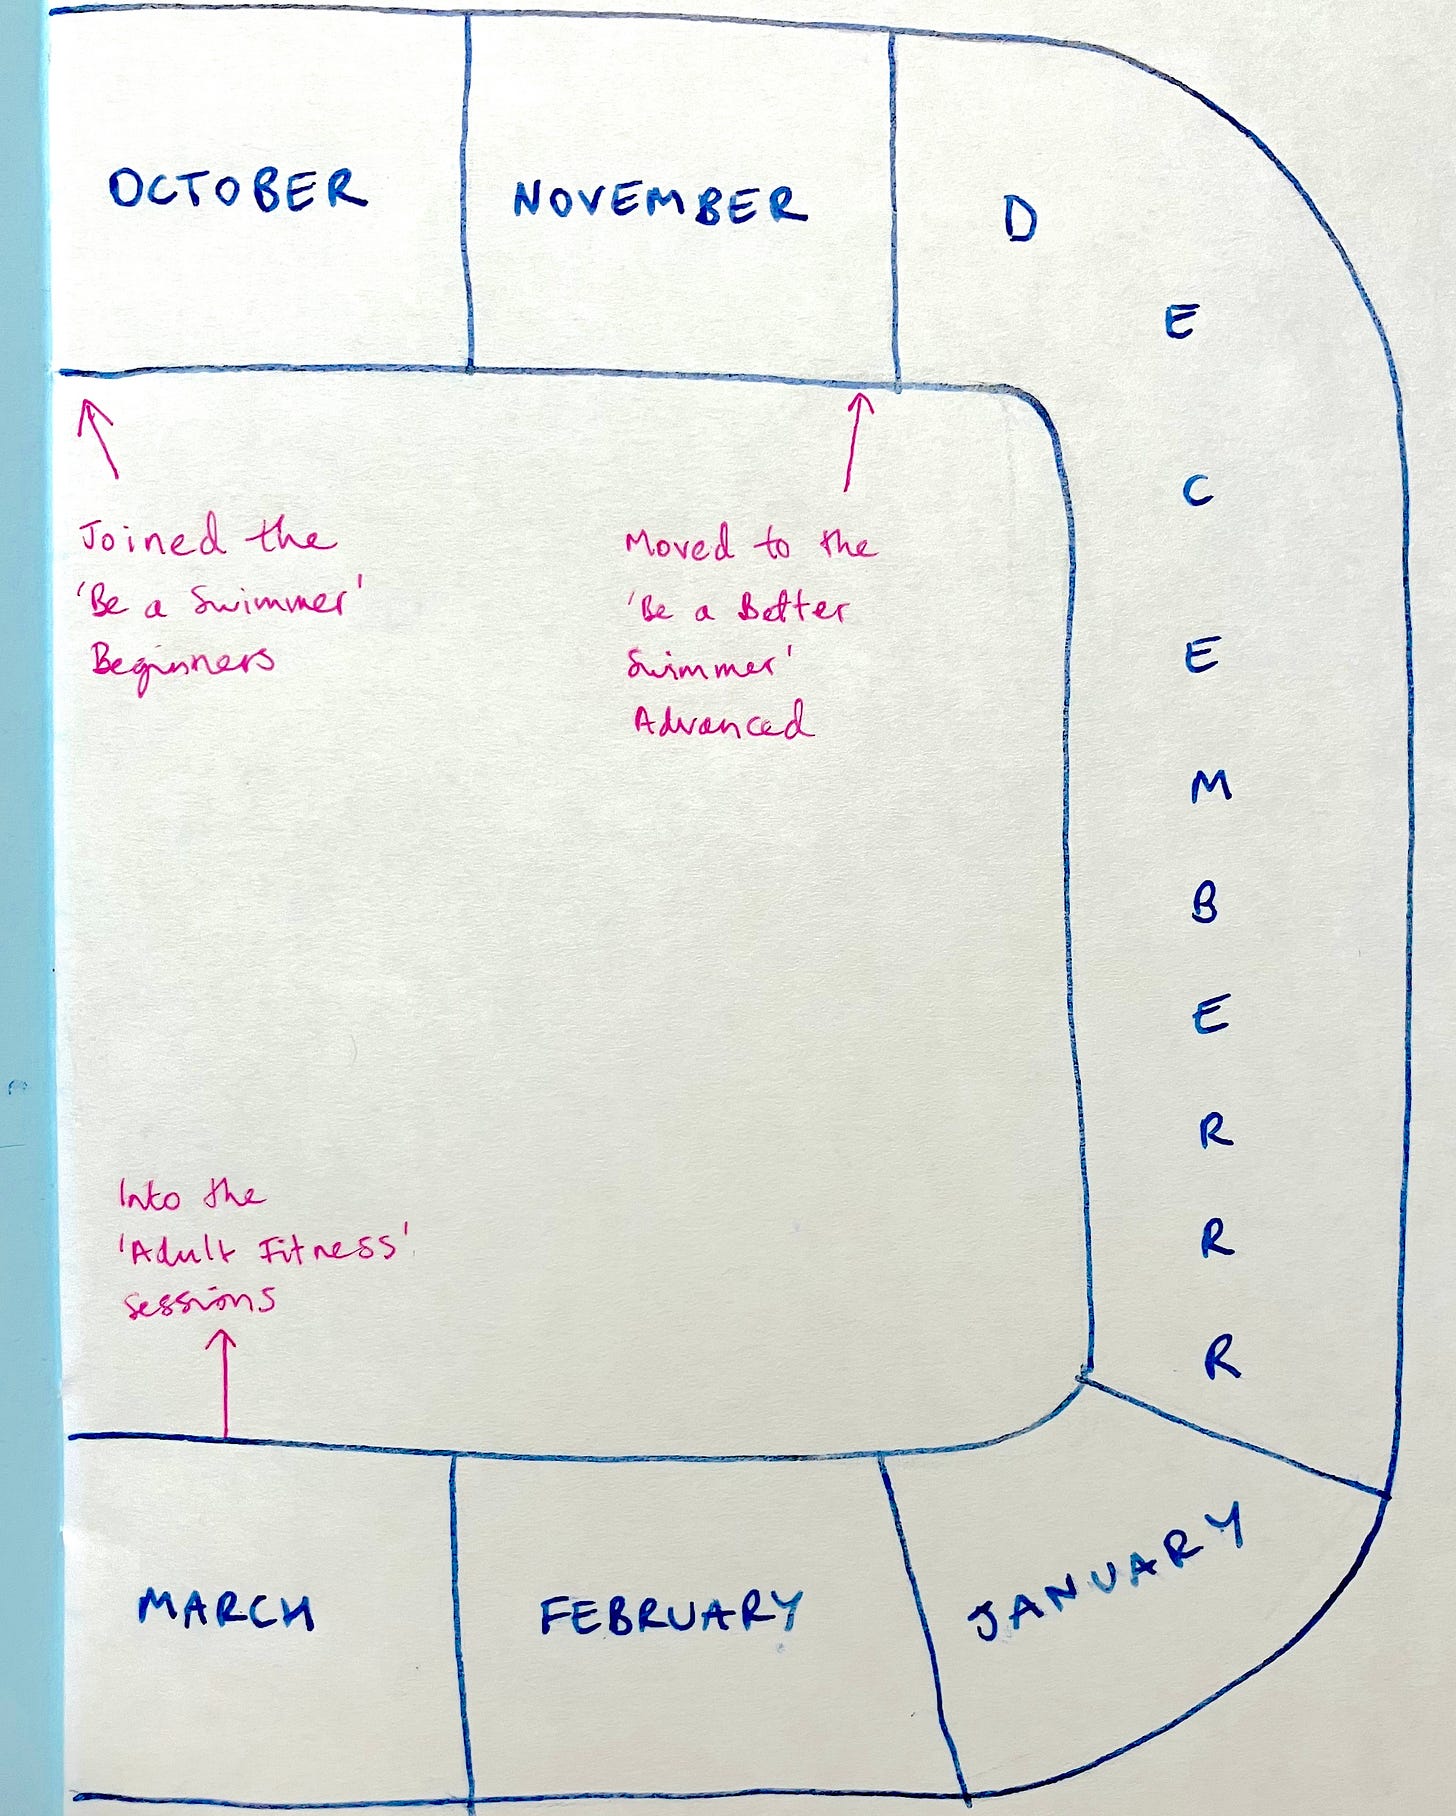 OCTOBER
NOVEMBER
DECEMBERRR
Joined the
'Be a Swimmer'
Beginners
Moved to the
'Be a Better
Swimmer'
Advanced
Into the
'Adult Fitness'
sessions
MARCH
FEBRUARY
JANUARY